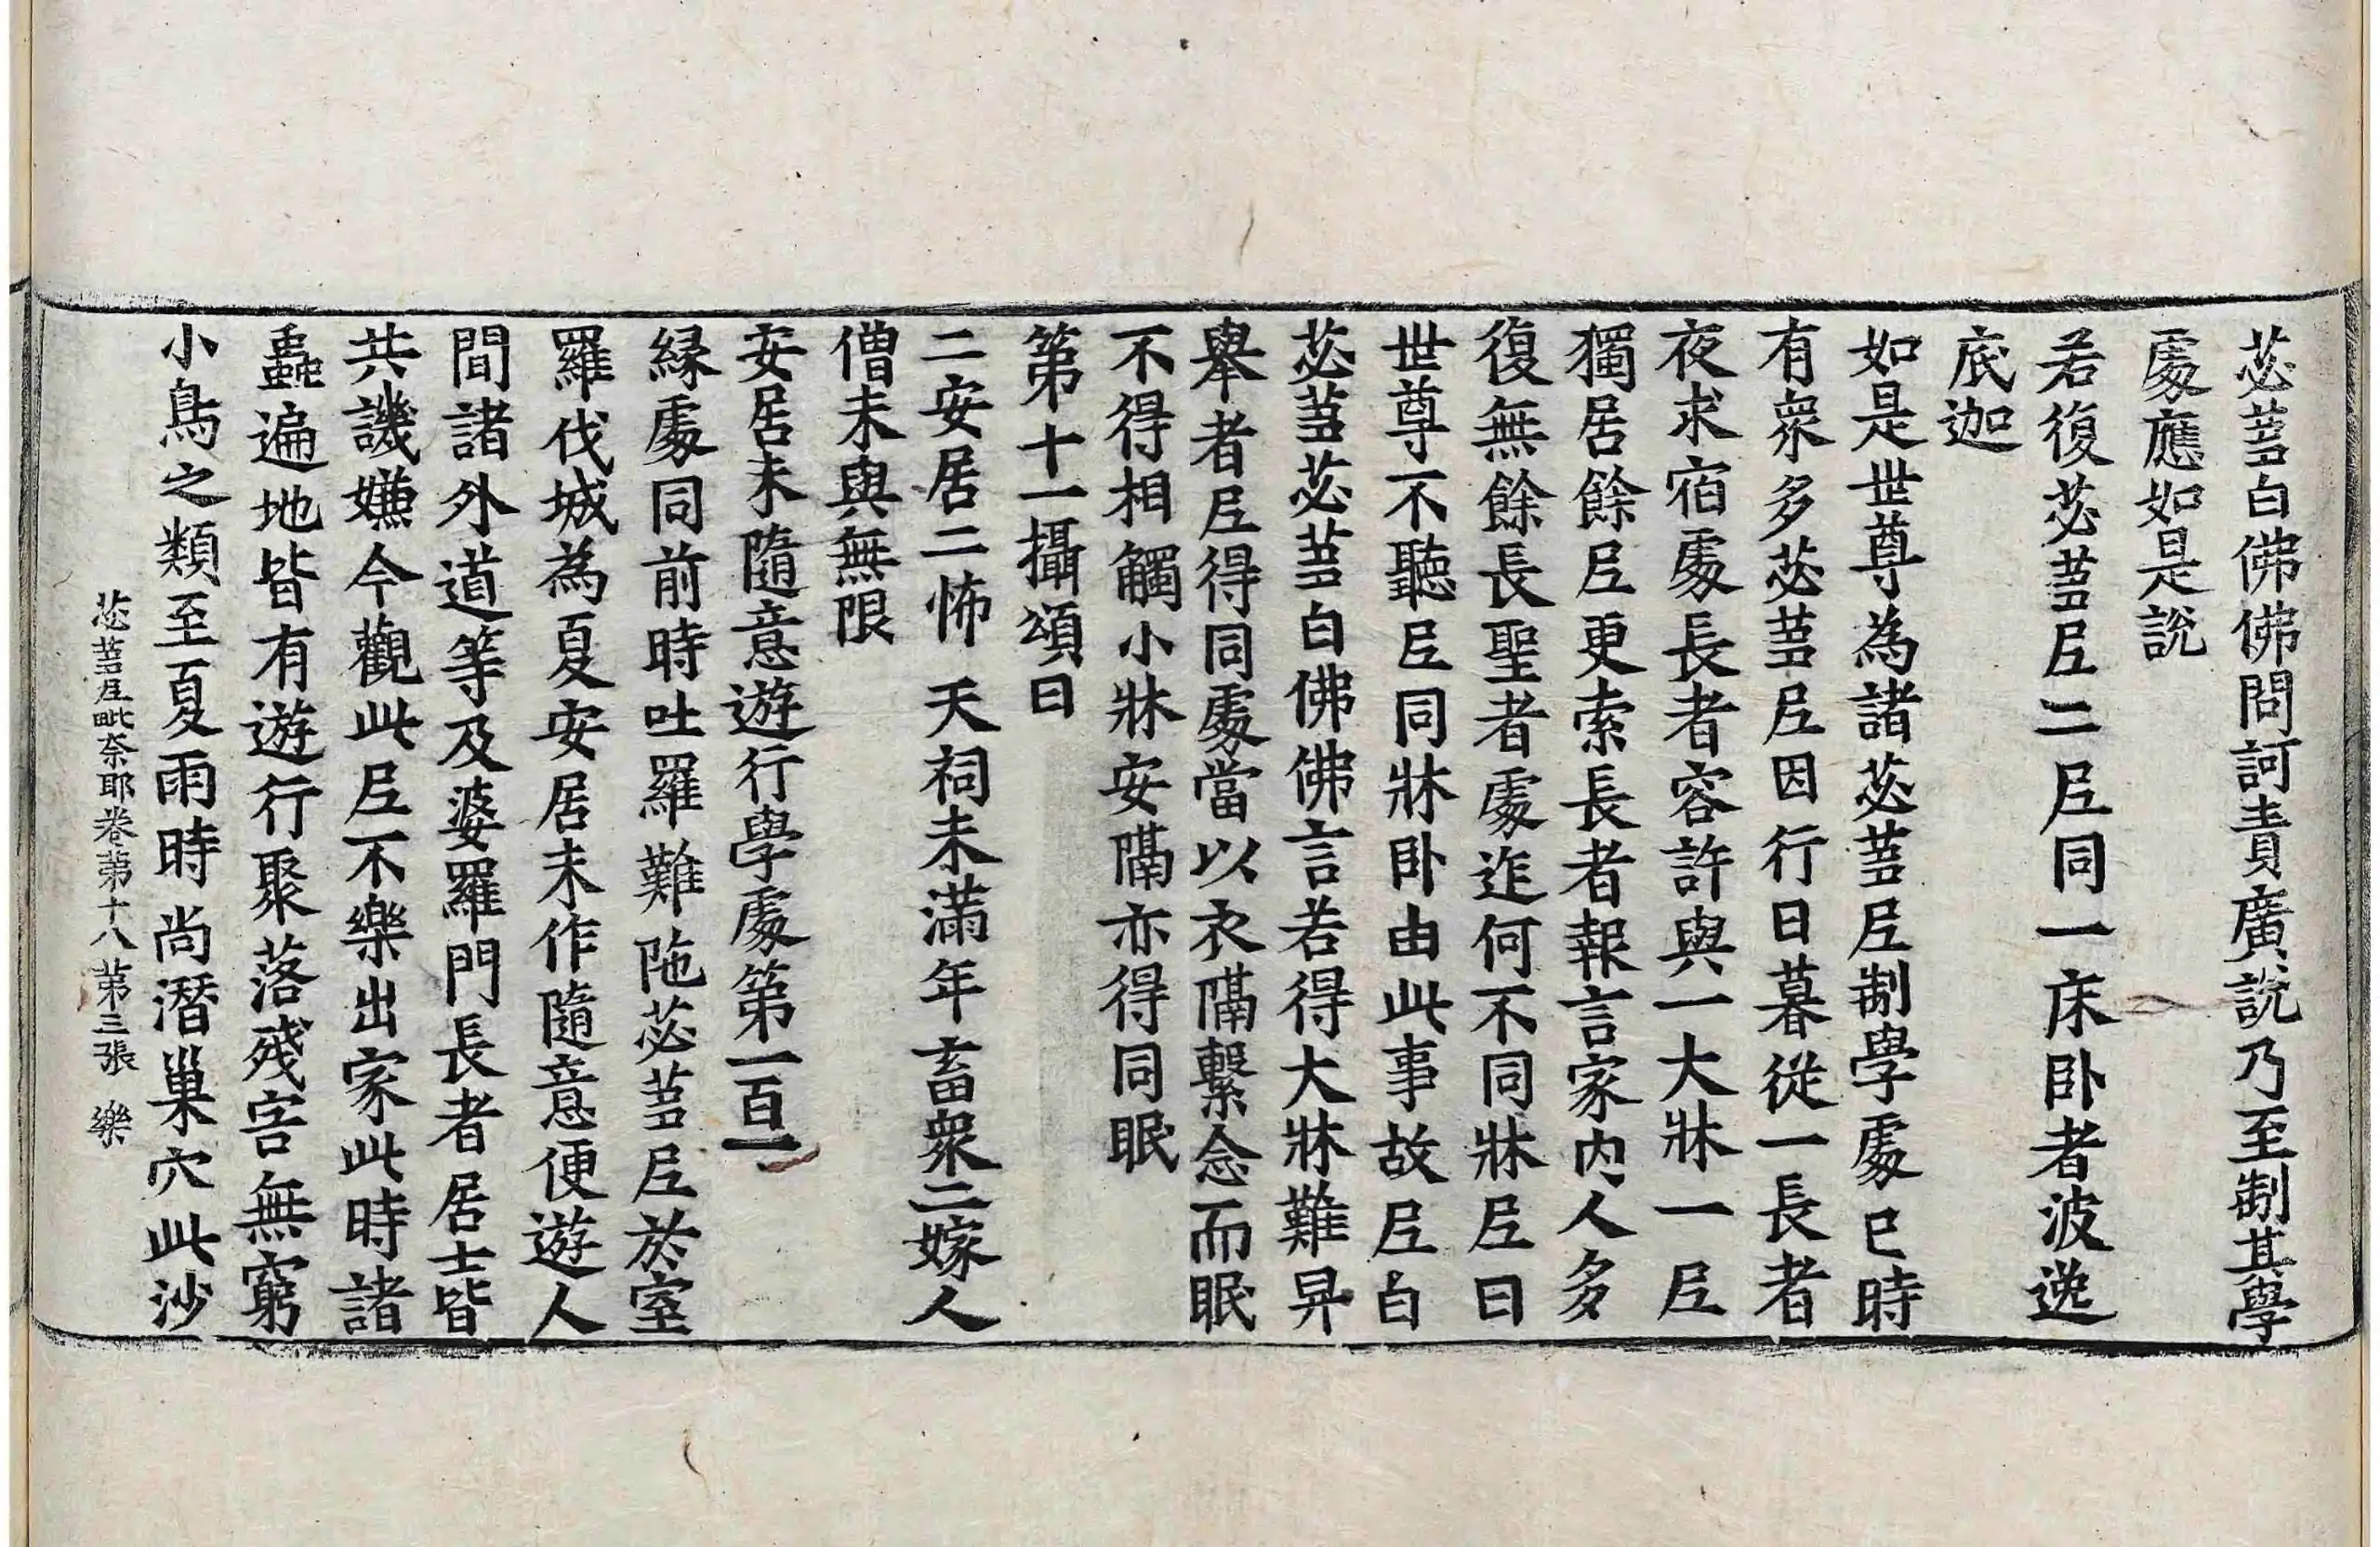 苾蒭白佛佛問訶責廣說乃至制其學
處應如是說
若復苾蒭尼二尼同一床臥者波逸
底迦
如是世尊為諸苾蒭尼制學處已時
有眾多苾蒭尼因行日暮從一長者
夜求宿處長者容許與一大牀一尼
獨居餘尼更索長者報言家內人多
復無餘長聖者處迮何不同牀尼曰
世尊不聽尼同牀臥由此事故尼白
苾蒭苾蒭白佛佛言若得大牀難昇
舉者尼得同處當以衣隔繫念而眠
不得相觸小牀安隔亦得同眠
第十一攝頌曰
二安居二怖 天祠未滿年 畜眾二嫁人
僧未與無限
安居未隨意遊行學處第一百一
緣處同前時吐羅難陁苾蒭尼於室
羅伐城為夏安居未作隨意便遊人
間諸外道等及婆羅門長者居士皆
共譏嫌今觀此尼不樂出家此時諸
蟲遍地皆有遊行聚落殘害無窮
小鳥之類至夏雨時尚潛巢穴此沙
苾蒭尼毗奈耶卷第十八 第三張 樂